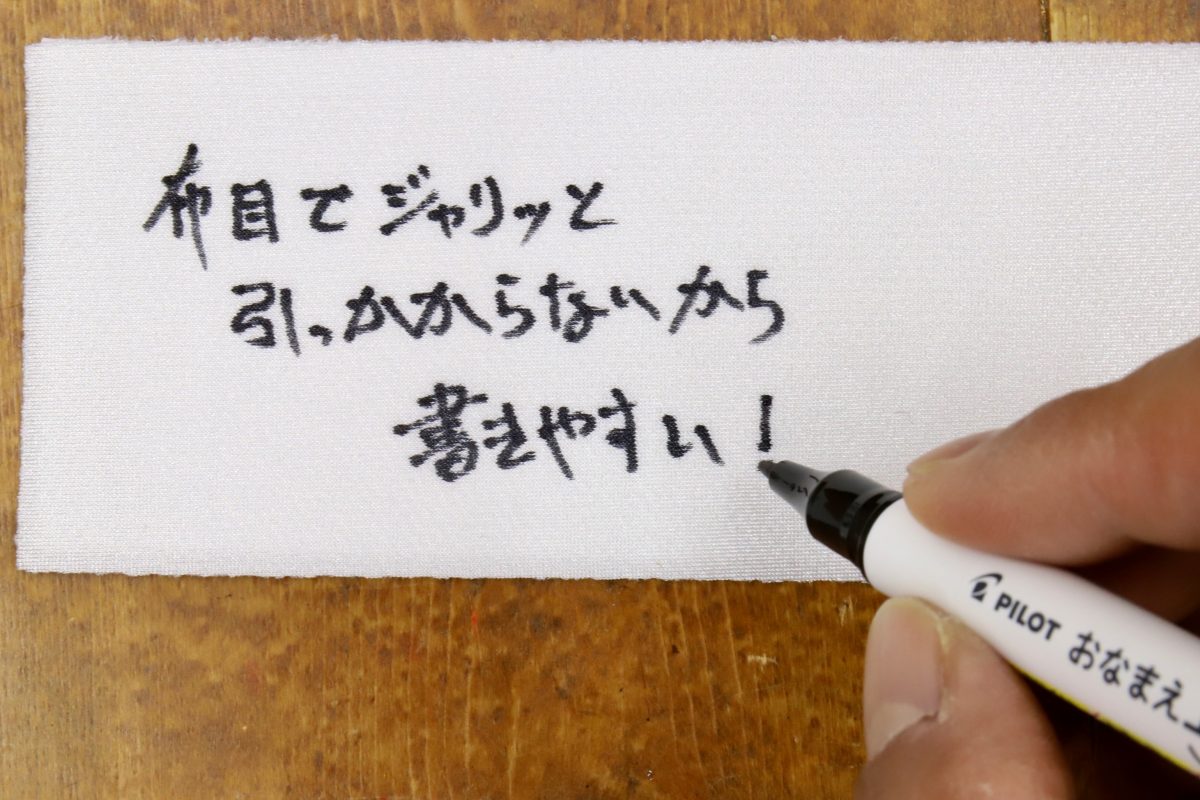 布目でジャリッと
引っかからないから
書きやすい!
PILOT おなまえ